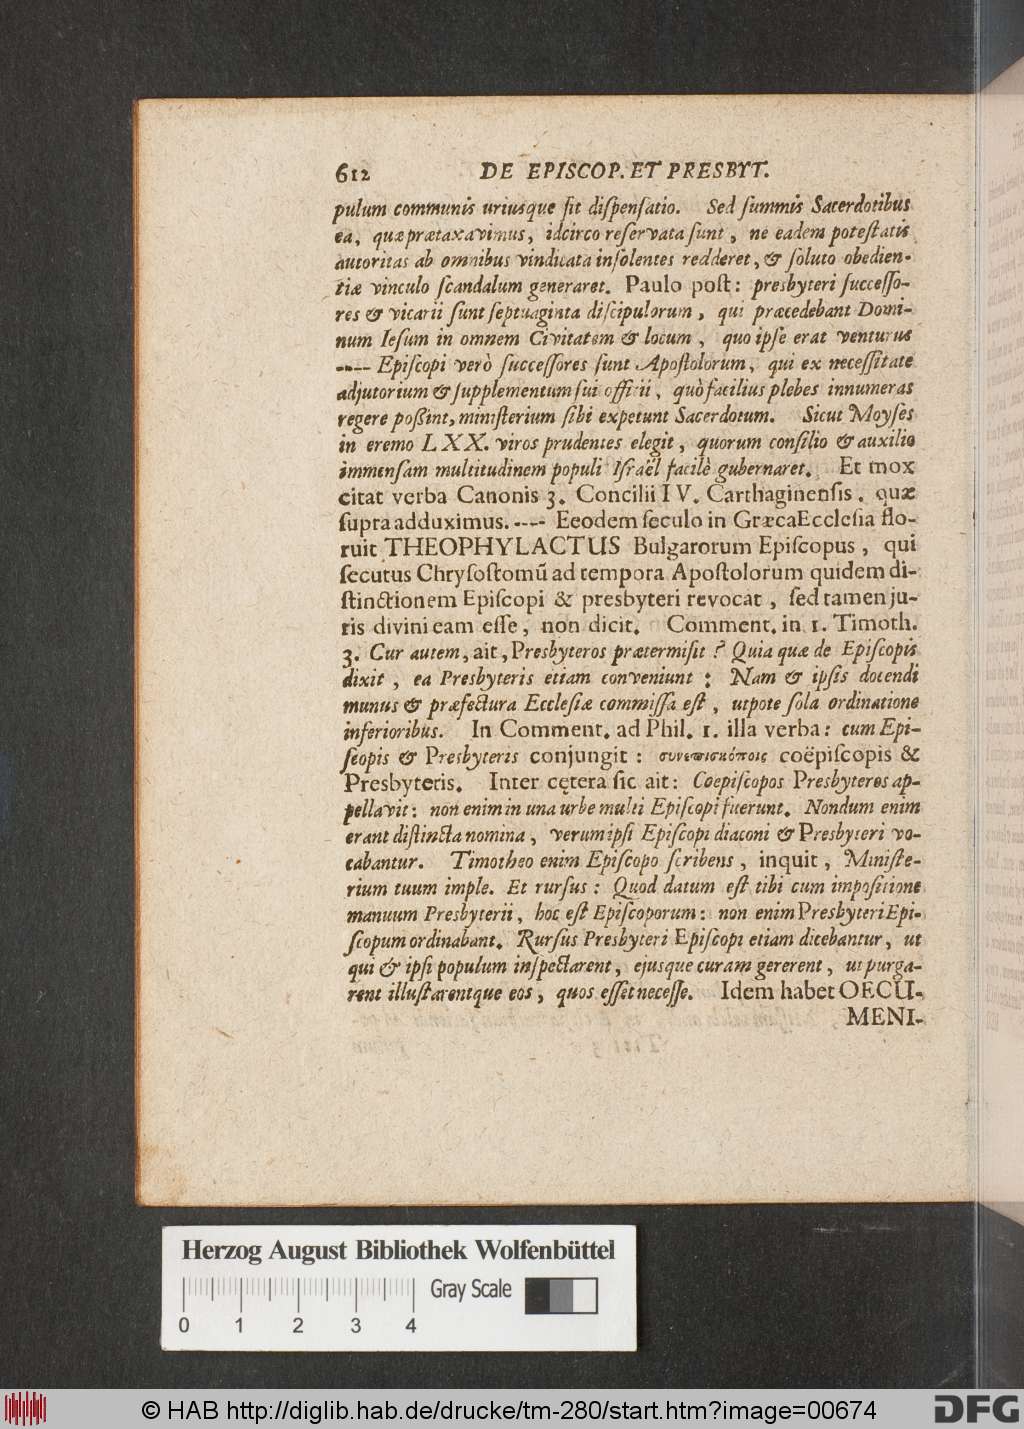 612 DE EPISCOP. ET PRESBYT.
pulum communis uriusque sit dispensatio. Sed summis Sacerdotibus
ea, quæ prætaxavimus, idcirco reservata sunt, ne eadem potestatis
autoritas ab omnibus vindicata insolentes redderet, & soluto obedien-
tiæ vinculo scandalum generaret. Paulo post: presbyteri successo-
res & vicarii sunt septuaginta discipulorum, qui præcedebant Domi-
num Iesum in omnem Civitatem & locum, quo ipse erat venturus
---- Episcopi verò successores sunt Apostolorum, qui ex necessitate
adjutorium & supplementum sui officii, quò facilius plebes innumeras
regere poßint, ministerium sibi expetunt Sacerdotum. Sicut Moyses
in eremo LXX. viros prudentes elegit, quorum consilio & auxilio
immensam multitudinem populi Israël facilè gubernaret. Et mox
citat verba Canonis 3. Concilii IV. Carthaginensis. quæ
supra adduximus. ---- Eeodem seculo in Græca Ecclesia flo-
ruit THEOPHYLACTUS Bulgarorum Episcopus, qui
secutus Chrysostomũ ad tempora Apostolorum quidem di-
stinctionem Episcopi & presbyteri revocat, sed tamen ju-
ris divini eam esse, non dicit. Comment. in 1. Timoth.
3. Cur autem, ait, Presbyteros prætermisit? Quia quæ de Episcopis
dixit, ea Presbyteris etiam conveniunt: Nam & ipsis docendi
munus & præfectura Ecclesiæ commissa est, utpote sola ordinatione
inferioribus. In Comment. ad Phil. 1. illa verba: cum Epi-
scopis & Presbyteris conjungit: συνεπισκόποις coëpiscopis &
Presbyteris. Inter cętera sic ait: Coepiscopos Presbyteros ap-
pellavit: non enim in una urbe multi Episcopi fuerunt. Nondum enim
erant distincta nomina, verum ipsi Episcopi diaconi & Presbyteri vo-
cabantur. Timotheo enim Episcopo scribens, inquit, Ministe-
rium tuum imple. Et rursus: Quod datum est tibi cum impositione
manuum Presbyterii, hoc est Episcoporum: non enim Presbyteri Epi-
scopum ordinabant. Rursus Presbyteri Episcopi etiam dicebantur, ut
qui & ipsi populum inspectarent, ejusque curam gererent, ut purga-
rent illustarentque eos, quos esset necesse. Idem habet OECU-
MENI-
Herzog August Bibliothek Wolfenbüttel
Gray Scale
0 1 2 3 4
© HAB http://diglib.hab.de/drucke/tm-280/start.htm?image=00674
DFG